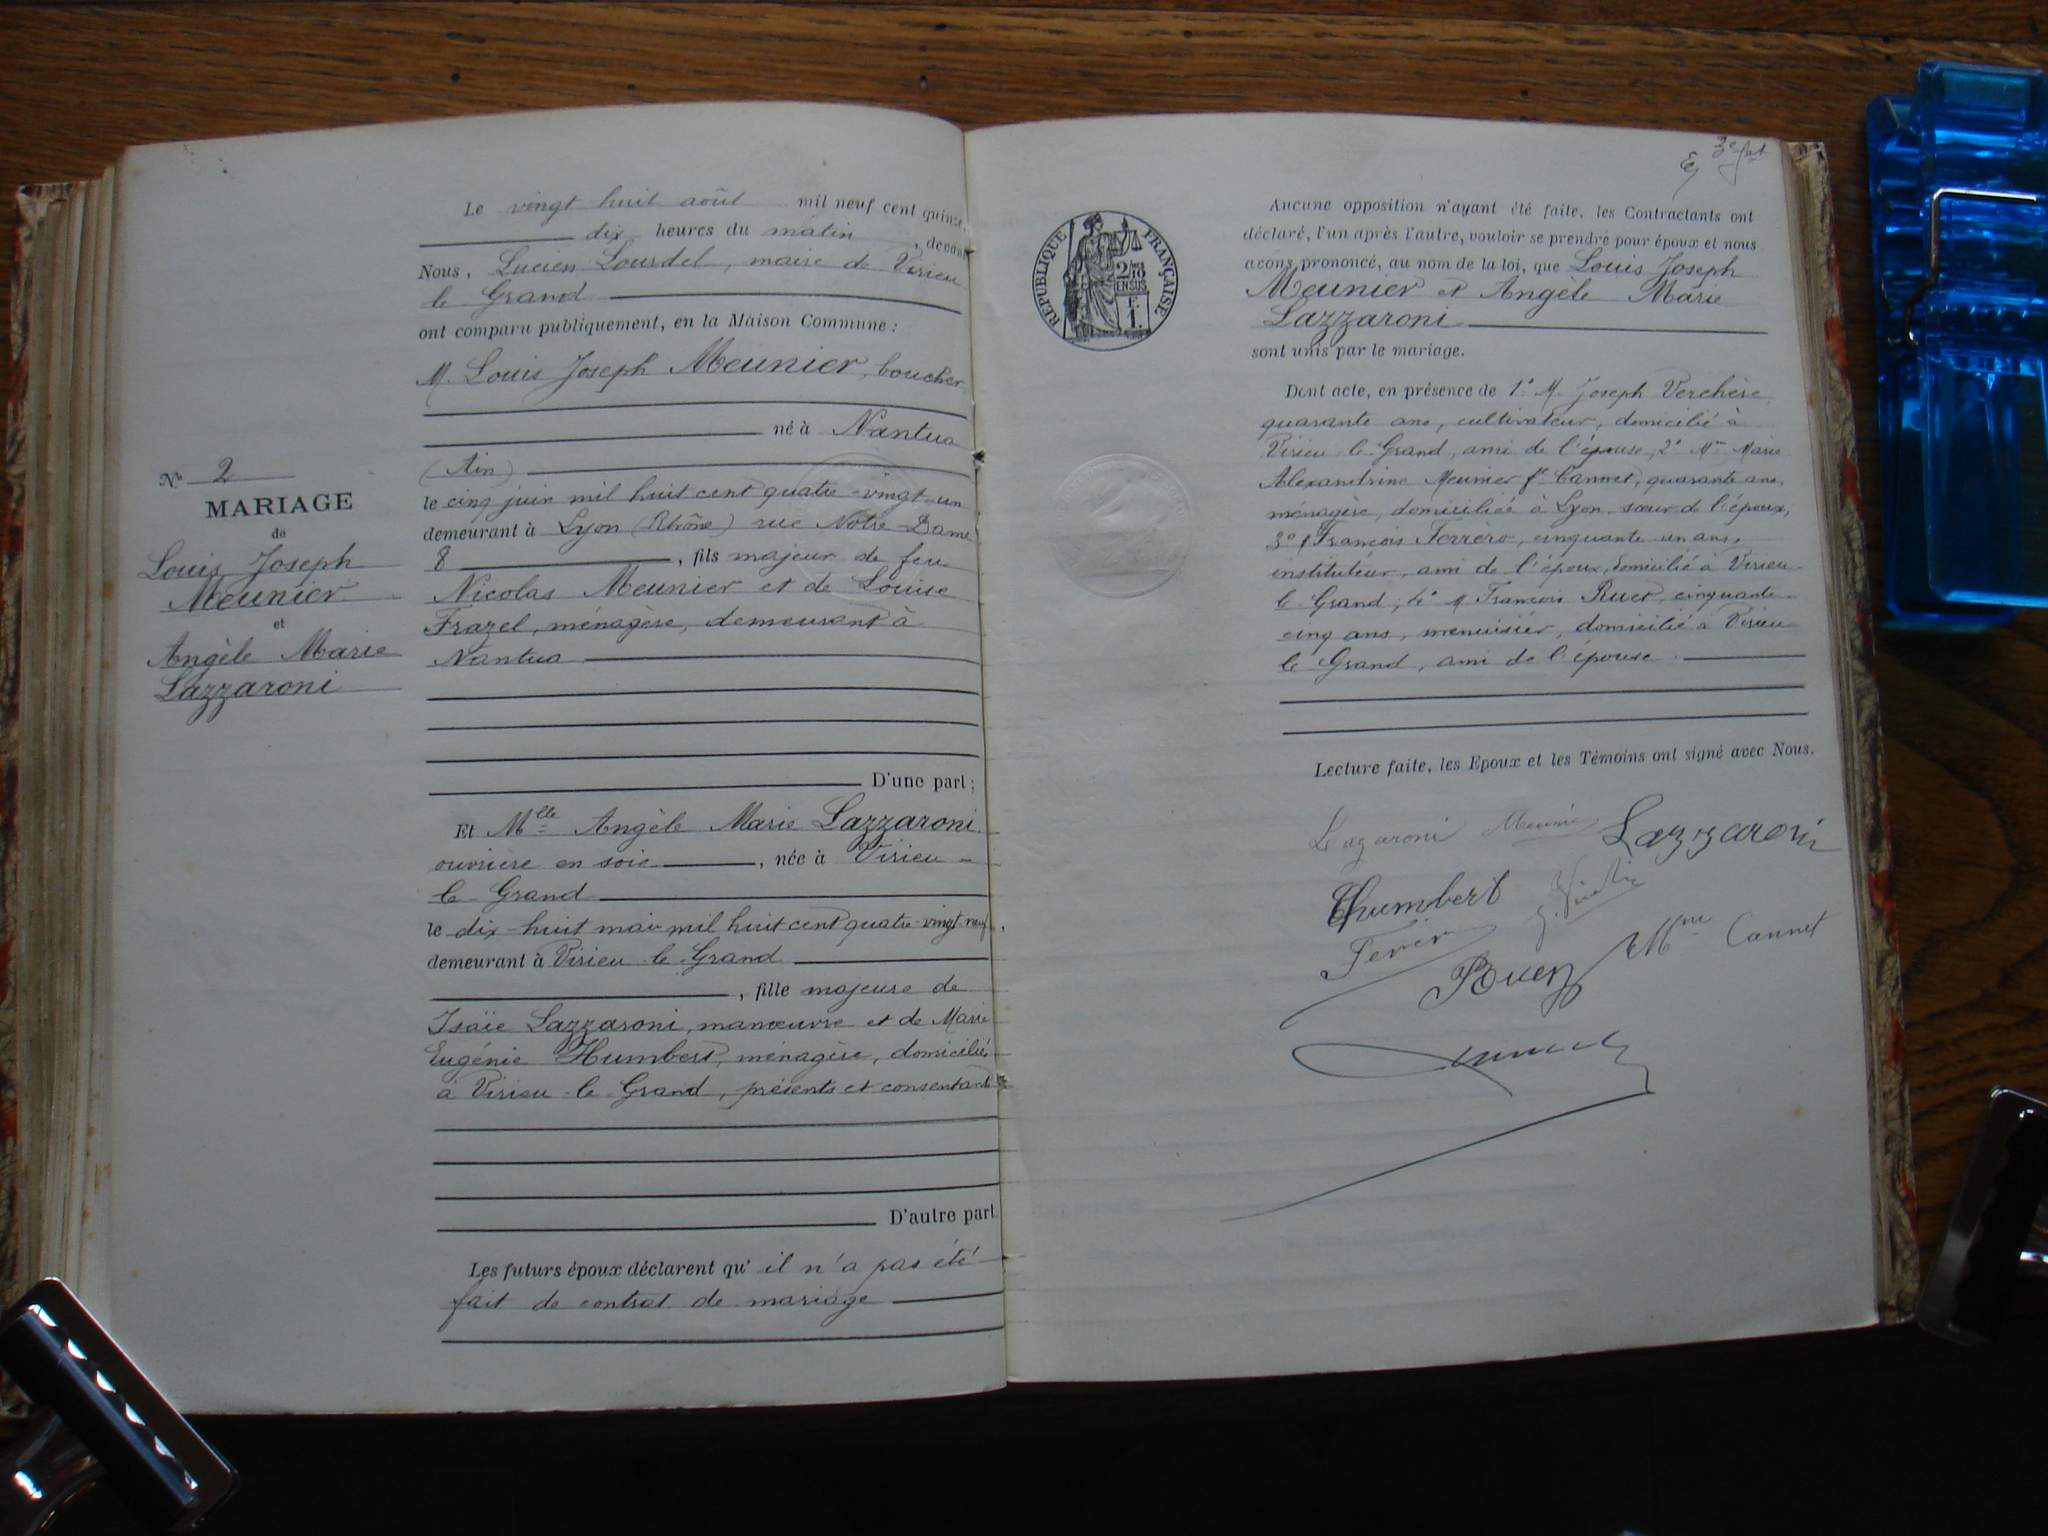 Le vingt huit août mil neuf cent quinze,
dix heures du matin, devant
Nous, Lucien Lourdel, maire de Virieu
le Grand
ont comparu publiquement, en la Maison Commune :
M. Louis Joseph Meunier, boucher
né à Nantua
(Ain)
le cinq juin mil huit cent quatre-vingt-un
demeurant à Lyon (Rhône) rue Notre-Dame
8, fils majeur de feu
Nicolas Meunier et de Louise
Frazel, ménagère, demeurant à
Nantua
D'une part ;
Et Mlle Angèle Marie Lazzaroni
ouvrière en soie, née à Virieu-
le Grand
le dix-huit mai mil huit cent quatre-vingt-neuf,
demeurant à Virieu-le-Grand
, fille majeure de
Isaïe Lazzaroni, manœuvre et de Marie
Eugénie Humbert, ménagère, domiciliés
à Virieu-le-Grand, présents et consentants
D'autre part.
Les futurs époux déclarent qu'il n'a pas été
fait de contrat de mariage
N° 2
MARIAGE
de
Louis Joseph
Meunier
et
Angèle Marie
Lazzaroni
RÉPUBLIQUE FRANÇAISE
2/10
EN SUS
1 F.
Aucune opposition n'ayant été faite, les Contractants ont
déclaré, l'un après l'autre, vouloir se prendre pour époux et nous
avons prononcé, au nom de la loi, que Louis Joseph
Meunier et Angèle Marie
Lazzaroni
sont unis par le mariage.
Dont acte, en présence de 1° M. Joseph Verchère
quarante ans, cultivateur, domicilié à
Virieu-le-Grand, ami de l'épouse, 2° Me Marie
Alexandrine Meunier fe Cannet, quarante ans,
ménagère, domiciliée à Lyon, sœur de l'époux,
3° François Ferrero, cinquante un ans,
instituteur, ami de l'époux, domicilié à Virieu
le Grand, 4° M. François Ruet, cinquante-
cinq ans, menuisier, domicilié à Virieu
le Grand, ami de l'épouse
Lecture faite, les Epoux et les Témoins ont signé avec Nous.
Lazaroni Meunier Lazzaroni
Ehumbert
Mme Cannet